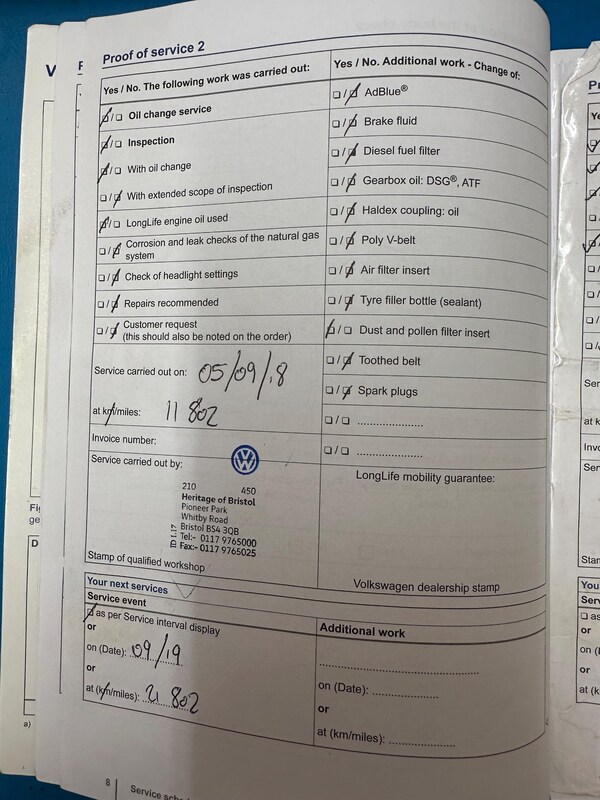 Proof of service 2
Yes / No. The following work was carried out:
Oil change service
Inspection
With oil change
With extended scope of inspection
LongLife engine oil used
Corrosion and leak checks of the natural gas
system
Check of headlight settings
Repairs recommended
Customer request
(this should also be noted on the order)
Service carried out on: 05/09/18
at km/miles: 11 802
Invoice number:
Service carried out by:
210 450
Heritage of Bristol
Pioneer Park
Whitby Road
Bristol BS4 3QB
Tel:- 0117 9765000
Fax:- 0117 9765025
Stamp of qualified workshop
Yes / No. Additional work - Change of:
AdBlue®
Brake fluid
Diesel fuel filter
Gearbox oil: DSG®, ATF
Haldex coupling: oil
Poly V-belt
Air filter insert
Tyre filler bottle (sealant)
Dust and pollen filter insert
Toothed belt
Spark plugs
LongLife mobility guarantee:
Volkswagen dealership stamp
Your next services
Service event
as per Service interval display
or
on (Date): 09/19
or
at (km/miles): 21 802
Additional work
on (Date):
or
at (km/miles):
8